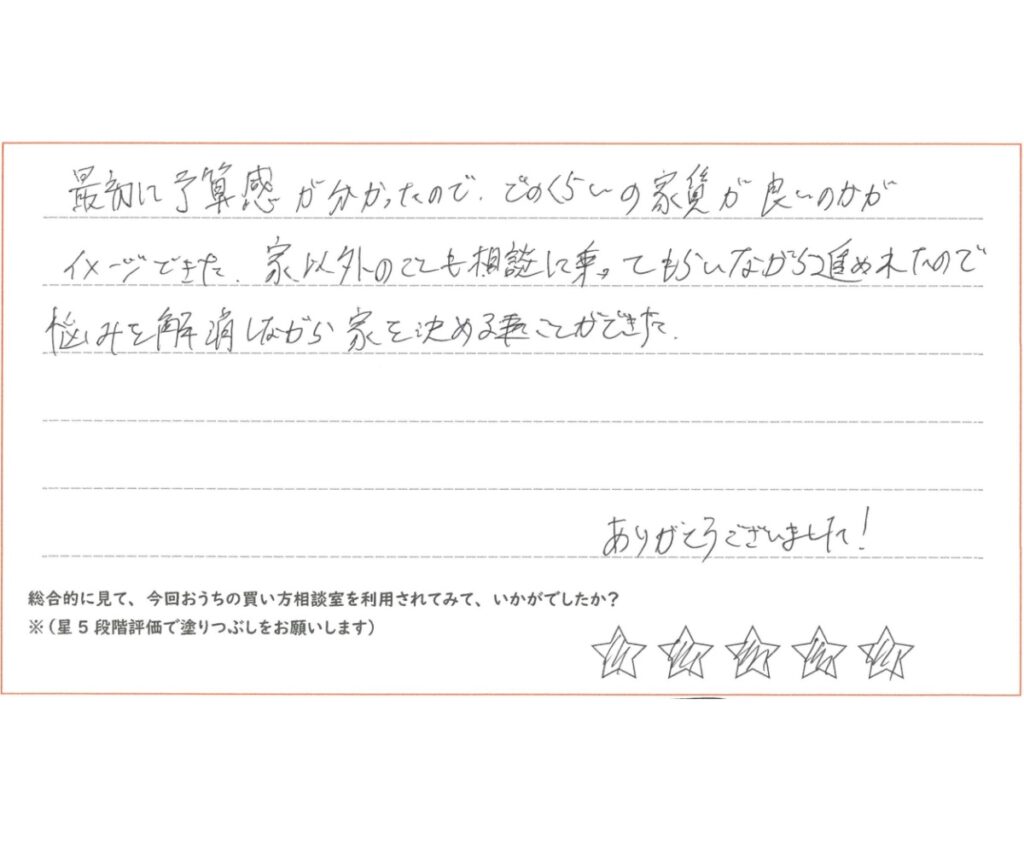 最初に予算感が分かったので、どのくらいの家賃が良いのかが
イメージできた。家以外のことも相談に乗ってもらいながら進めれたので
悩みを解消しながら家を決めることができた。
ありがとうございました!
総合的に見て、今回おうちの買い方相談室を利用されてみて、いかがでしたか?
※(星5段階評価で塗りつぶしをお願いします)